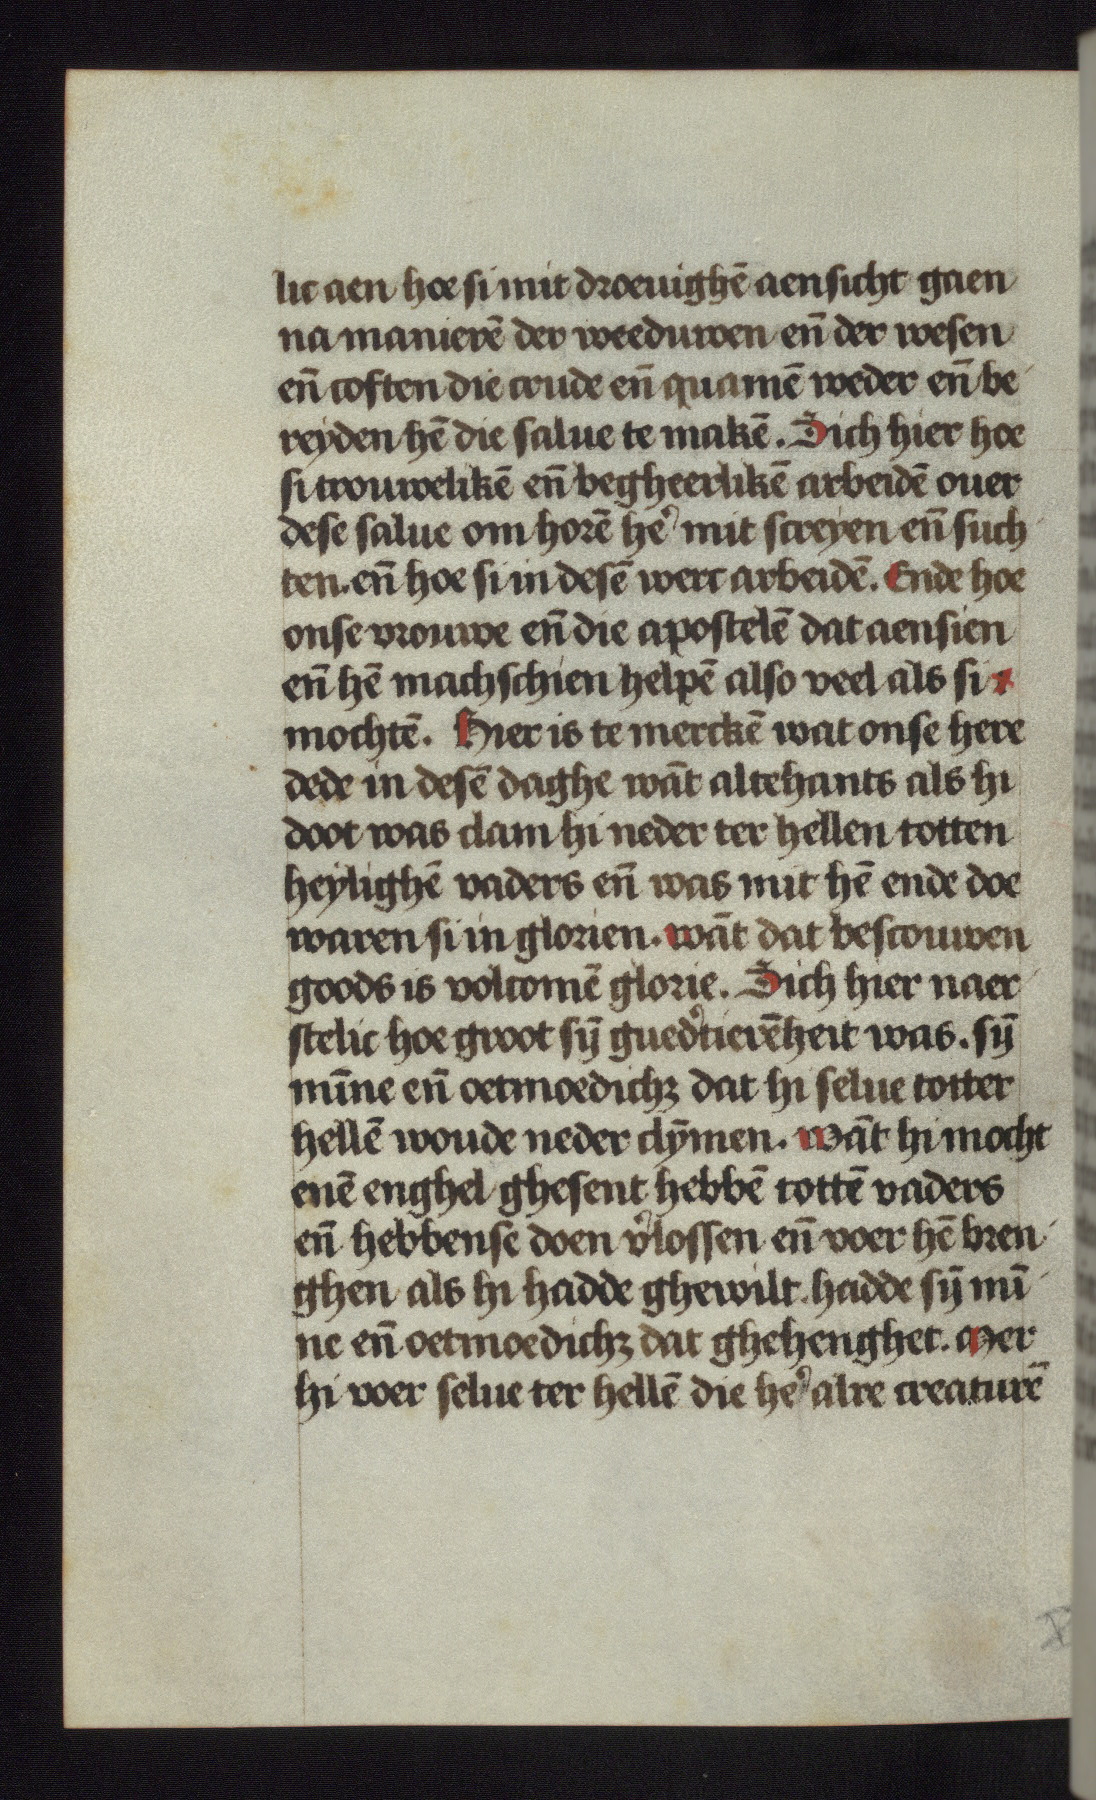 lic aen hoe si mit droeuighē aensicht gaen
na manierē der weeduwen eñ der wesen
eñ coften die crude eñ quamē weder eñ be
reyden hē die salue te makē. Sich hier hoe
si trouwelikē eñ begheerlikē arbeidē ouer
dese salue om horē he' mit screyen eñ such
ten. eñ hoe si in desē werc arbeidē. Ende hoe
onse vrouwe eñ die apostelē dat aensien
eñ hē machschien helpē also veel als si
mochtē. Hier is te merckē wat onse here
dede in desē daghe wāt altehants als hi
doot was clam hi neder ter hellen totten
heylighē vaders eñ was mit hē ende doe
waren si in glorien. wāt dat bescouwen
goods is volcomē glorie. Sich hier naer
stelic hoe groot sȳ gued'tierēheit was. sȳ
mīne eñ oetmoedichꝫ dat hi selue totter
hellē woude neder clȳmen. wāt hi mocht
enē enghel ghesent hebbē tottē vaders
eñ hebbense doen v'lossen eñ voer hē bren
ghen als hi hadde ghewilt. hadde sȳ mī
ne eñ oetmoedichꝫ dat ghehenghet. Mer
hi voer selue ter hellē die he' alre creaturē